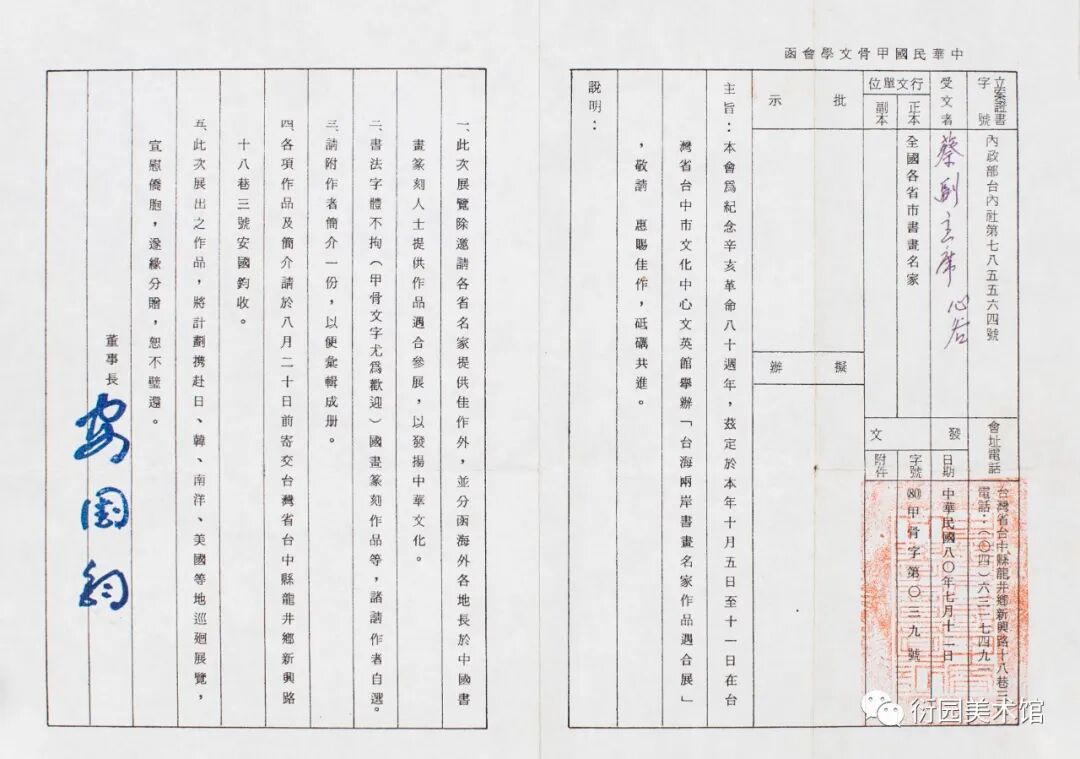 中華民國甲骨文學會函
立案證書字號
內政部台內社第七八五五六四號
會址電話
台灣省台中縣龍井鄉新興路十八巷三
電話：(〇四)六三一七四九一
受文者
蔡副主席 心谷
行文單位
正本
全國各省市書畫名家
副本
發文
日期
中華民國八〇年七月十一日
字號
(80)甲骨字第〇三九號
附件
批示
擬辦
主旨：本會為紀念辛亥革命八十週年，茲定於本年十月五日至十一日在台
灣省台中市文化中心文英館舉辦「台海兩岸書畫名家作品遇合展」
，敬請　惠賜佳作，砥礪共進。
說明：
一、此次展覽除邀請各省名家提供佳作外，並分函海外各地長於中國書
畫篆刻人士提供作品遇合參展，以發揚中華文化。
二、書法字體不拘（甲骨文字尤為歡迎）國畫篆刻作品等，諸請作者自選。
三、請附作者簡介一份，以便彙輯成册。
四、各項作品及簡介請於八月二十日前寄交台灣省台中縣龍井鄉新興路
十八巷三號安國鈞收。
五、此次展出之作品，將計劃携赴日、韓、南洋、美國等地巡廻展覽，
宣慰僑胞，遂緣分贈，恕不璧還。
董事長
安國鈞
衍园美术馆